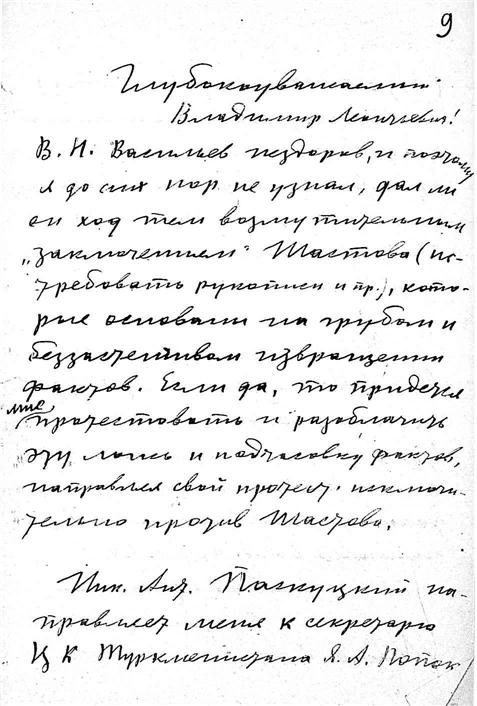 9
Глубокоуважаемый
Владимир Леонтьевич!
В. И. Васильев нездоров, и поэтому
я до сих пор не узнал, дал ли
он ход тем возмутительным
„заключениям" Шастова (ис-
требовать рукописи и пр.), кото-
рые основаны на грубом и
беззастенчивом извращении
фактов. Если да, то придется
мне протестовать и разоблачить
эту ложь и подтасовку фактов,
направляя свой протест исключи-
тельно против Шастова.
Ник. Ант. Паскуцкий на-
правляет меня к секретарю
ЦК Туркменистана Я. А. Попок